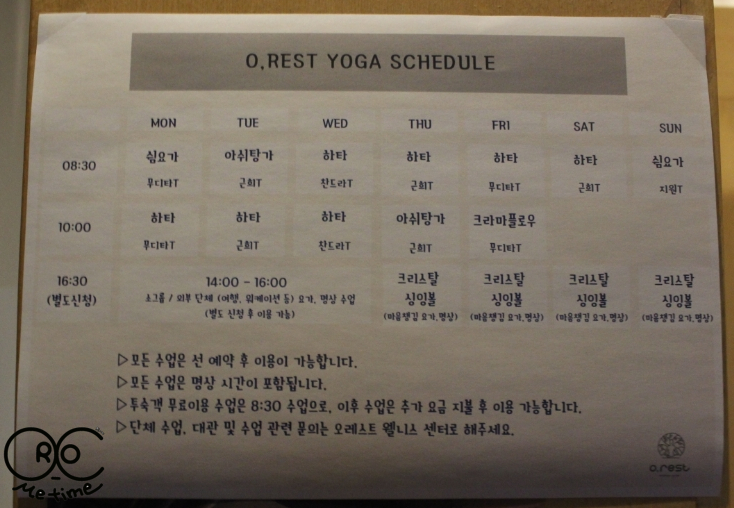 O,REST YOGA SCHEDULE
MON TUE WED THU FRI SAT SUN
08:30 쉼요가 아쉬탕가 하타 하타 하타 하타 쉼요가
무디타T 근희T 찬드라T 근희T 무디타T 근희T 지원T
10:00 하타 하타 하타 아쉬탕가 크라마플로우
무디타T 근희T 찬드라T 근희T 무디타T
16:30 14:00 - 16:00 크리스탈 크리스탈 크리스탈 크리스탈
(별도신청) 소그룹 / 외부 단체 (여행, 워케이션 등) 요가, 명상 수업 싱잉볼 싱잉볼 싱잉볼 싱잉볼
(별도 신청 후 이용 가능) (마음챙김 요가,명상) (마음챙김 요가,명상) (마음챙김 요가,명상) (마음챙김 요가,명상)
▷모든 수업은 선 예약 후 이용이 가능합니다.
▷모든 수업은 명상 시간이 포함됩니다.
▷투숙객 무료이용 수업은 8:30 수업으로, 이후 수업은 추가 요금 지불 후 이용 가능합니다.
▷단체 수업, 대관 및 수업 관련 문의는 오레스트 웰니스 센터로 해주세요.
o,rest
CROC
Me+time